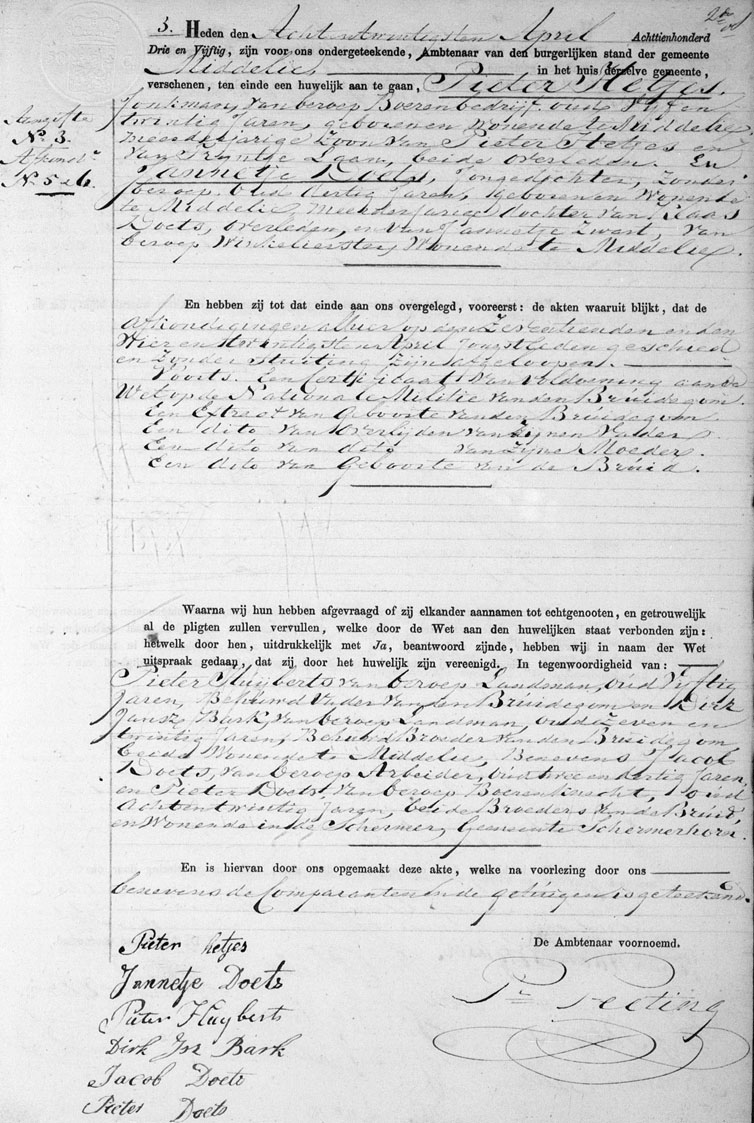 3. Heden den Acht en twintigsten April Achttienhonderd
Drie en Vijftig, zijn voor ons ondergeteekende, Ambtenaar van den burgerlijken stand der gemeente
Middelie, in het huis derzelve gemeente,
verschenen, ten einde een huwelijk aan te gaan, Pieter Hetjes,
Jonkman, van beroep Boerenbedrijf, oud Vijf en
twintig Jaren, geboren en wonende te Middelie,
meerderjarige Zoon van Pieter Hetjes en
van Trijntje Laan, beide overleden. En
Jannetje Doets, Jongedochter, zonder
beroep, Oud dertig Jaren, geboren en Wonende
te Middelie, meerderjarige dochter van Klaas
Doets, overleden, en van Jannetje Zwart, van
beroep Winkelierster, Wonende te Middelie.
Aangifte
No. 3.
Afkond.
No. 5 e 6.
En hebben zij tot dat einde aan ons overgelegd, vooreerst: de akten waaruit blijkt, dat de
Afkondigingen alhier op den Zeventienden en den
Vier en twintigsten April Jongstleden geschied
en zonder stuiting zijn afgeloopen.
Voorts. Een Certificaat van Voldoening aan de
Wet op de Nationale Militie van den Bruidegom.
Een Extract van Geboorte van den Bruidegom
Een dito van Overlijden van zijnen Vader.
Een dito van dito van zijne Moeder.
Een dito van Geboorte van de Bruid.
Waarna wij hun hebben afgevraagd of zij elkander aannamen tot echtgenooten, en getrouwelijk
al de pligten zullen vervullen, welke door de Wet aan den huwelijken staat verbonden zijn:
hetwelk door hen, uitdrukkelijk met Ja, beantwoord zijnde, hebben wij in naam der Wet
uitspraak gedaan, dat zij door het huwelijk zijn vereenigd. In tegenwoordigheid van:
Pieter Huyberts van beroep Landman, oud Vijftig
Jaren, Behuwd Vader van den Bruidegom en Dirk
Jansz Bark, van beroep Landman, oud Zeven en
twintig Jaren, Behuwd Broeder van den Bruidegom
beede Wonende te Middelie, Benevens Jacob
Doets, van beroep Arbeider, oud twee en dertig Jaren,
en Pieter Doets, van beroep Boerenknecht, oud
Acht en twintig Jaren, beide Broeders van de Bruid,
en Wonende in de Schermer, Gemeente Schermerhorn.
En is hiervan door ons opgemaakt deze akte, welke na voorlezing door ons
benevens de Comparanten en de getuigen is geteekend.
Pieter hetjes
Jannetje Doets
Pieter Huyberts
Dirk Jsz Bark
Jacob Doets
Pieter Doets
De Ambtenaar voornoemd.
Pr Peeting